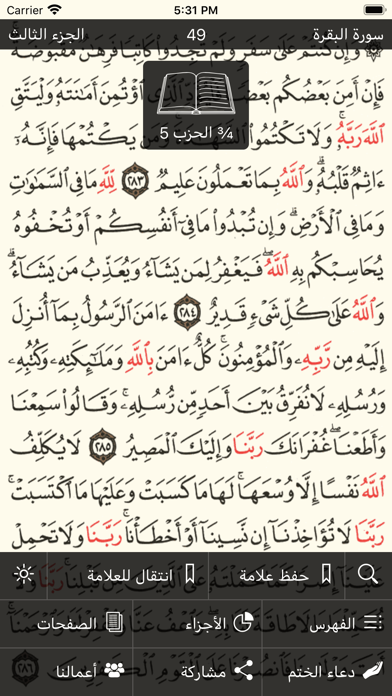 Carrier 5:31 PM
سورة البقرة 49 الجزء الثالث
۞ وَإِن كُنتُمْ عَلَىٰ سَفَرٍ وَلَمْ تَجِدُوا۟ كَاتِبًا فَرِهَـٰنٌ مَّقْبُوضَةٌ ۖ
فَإِنْ أَمِنَ بَعْضُكُم بَعْضًا ٱؤْتُمِنَ أَمَـٰنَتَهُۥ وَلْيَتَّقِ
¾ الحزب 5
ٱللَّهَ رَبَّهُۥ ۗ وَلَا تَكْتُمُوا۟ وَمَن يَكْتُمْهَا فَإِنَّهُۥٓ
ءَاثِمٌ قَلْبُهُۥ ۗ وَٱللَّهُ بِمَا تَعْمَلُونَ عَلِيمٌ ٢٨٣ لِّلَّهِ مَا فِى ٱلسَّمَـٰوَٰتِ
وَمَا فِى ٱلْأَرْضِ ۗ وَإِن تُبْدُوا۟ مَا فِىٓ أَنفُسِكُمْ أَوْ تُخْفُوهُ
يُحَاسِبْكُم بِهِ ٱللَّهُ ۖ فَيَغْفِرُ لِمَن يَشَآءُ وَيُعَذِّبُ مَن يَشَآءُ ۗ
وَٱللَّهُ عَلَىٰ كُلِّ شَىْءٍ قَدِيرٌ ٢٨٤ ءَامَنَ ٱلرَّسُولُ بِمَآ أُنزِلَ
إِلَيْهِ مِن رَّبِّهِۦ وَٱلْمُؤْمِنُونَ ۚ كُلٌّ ءَامَنَ بِٱللَّهِ وَمَلَـٰٓئِكَتِهِۦ وَكُتُبِهِۦ
وَرُسُلِهِۦ لَا نُفَرِّقُ بَيْنَ أَحَدٍ مِّن رُّسُلِهِۦ ۚ وَقَالُوا۟ سَمِعْنَا
وَأَطَعْنَا ۖ غُفْرَانَكَ رَبَّنَا وَإِلَيْكَ ٱلْمَصِيرُ ٢٨٥ لَا يُكَلِّفُ
ٱللَّهُ نَفْسًا إِلَّا وُسْعَهَا ۚ لَهَا مَا كَسَبَتْ وَعَلَيْهَا مَا ٱكْتَسَبَتْ ۗ
رَبَّنَا لَا تُؤَاخِذْنَآ إِن نَّسِينَآ أَوْ أَخْطَأْنَا ۚ رَبَّنَا وَلَا تَحْمِلْ
حفظ علامة انتقال للعلامة
الفهرس الأجزاء الصفحات
دعاء الختم مشاركة أعمالنا